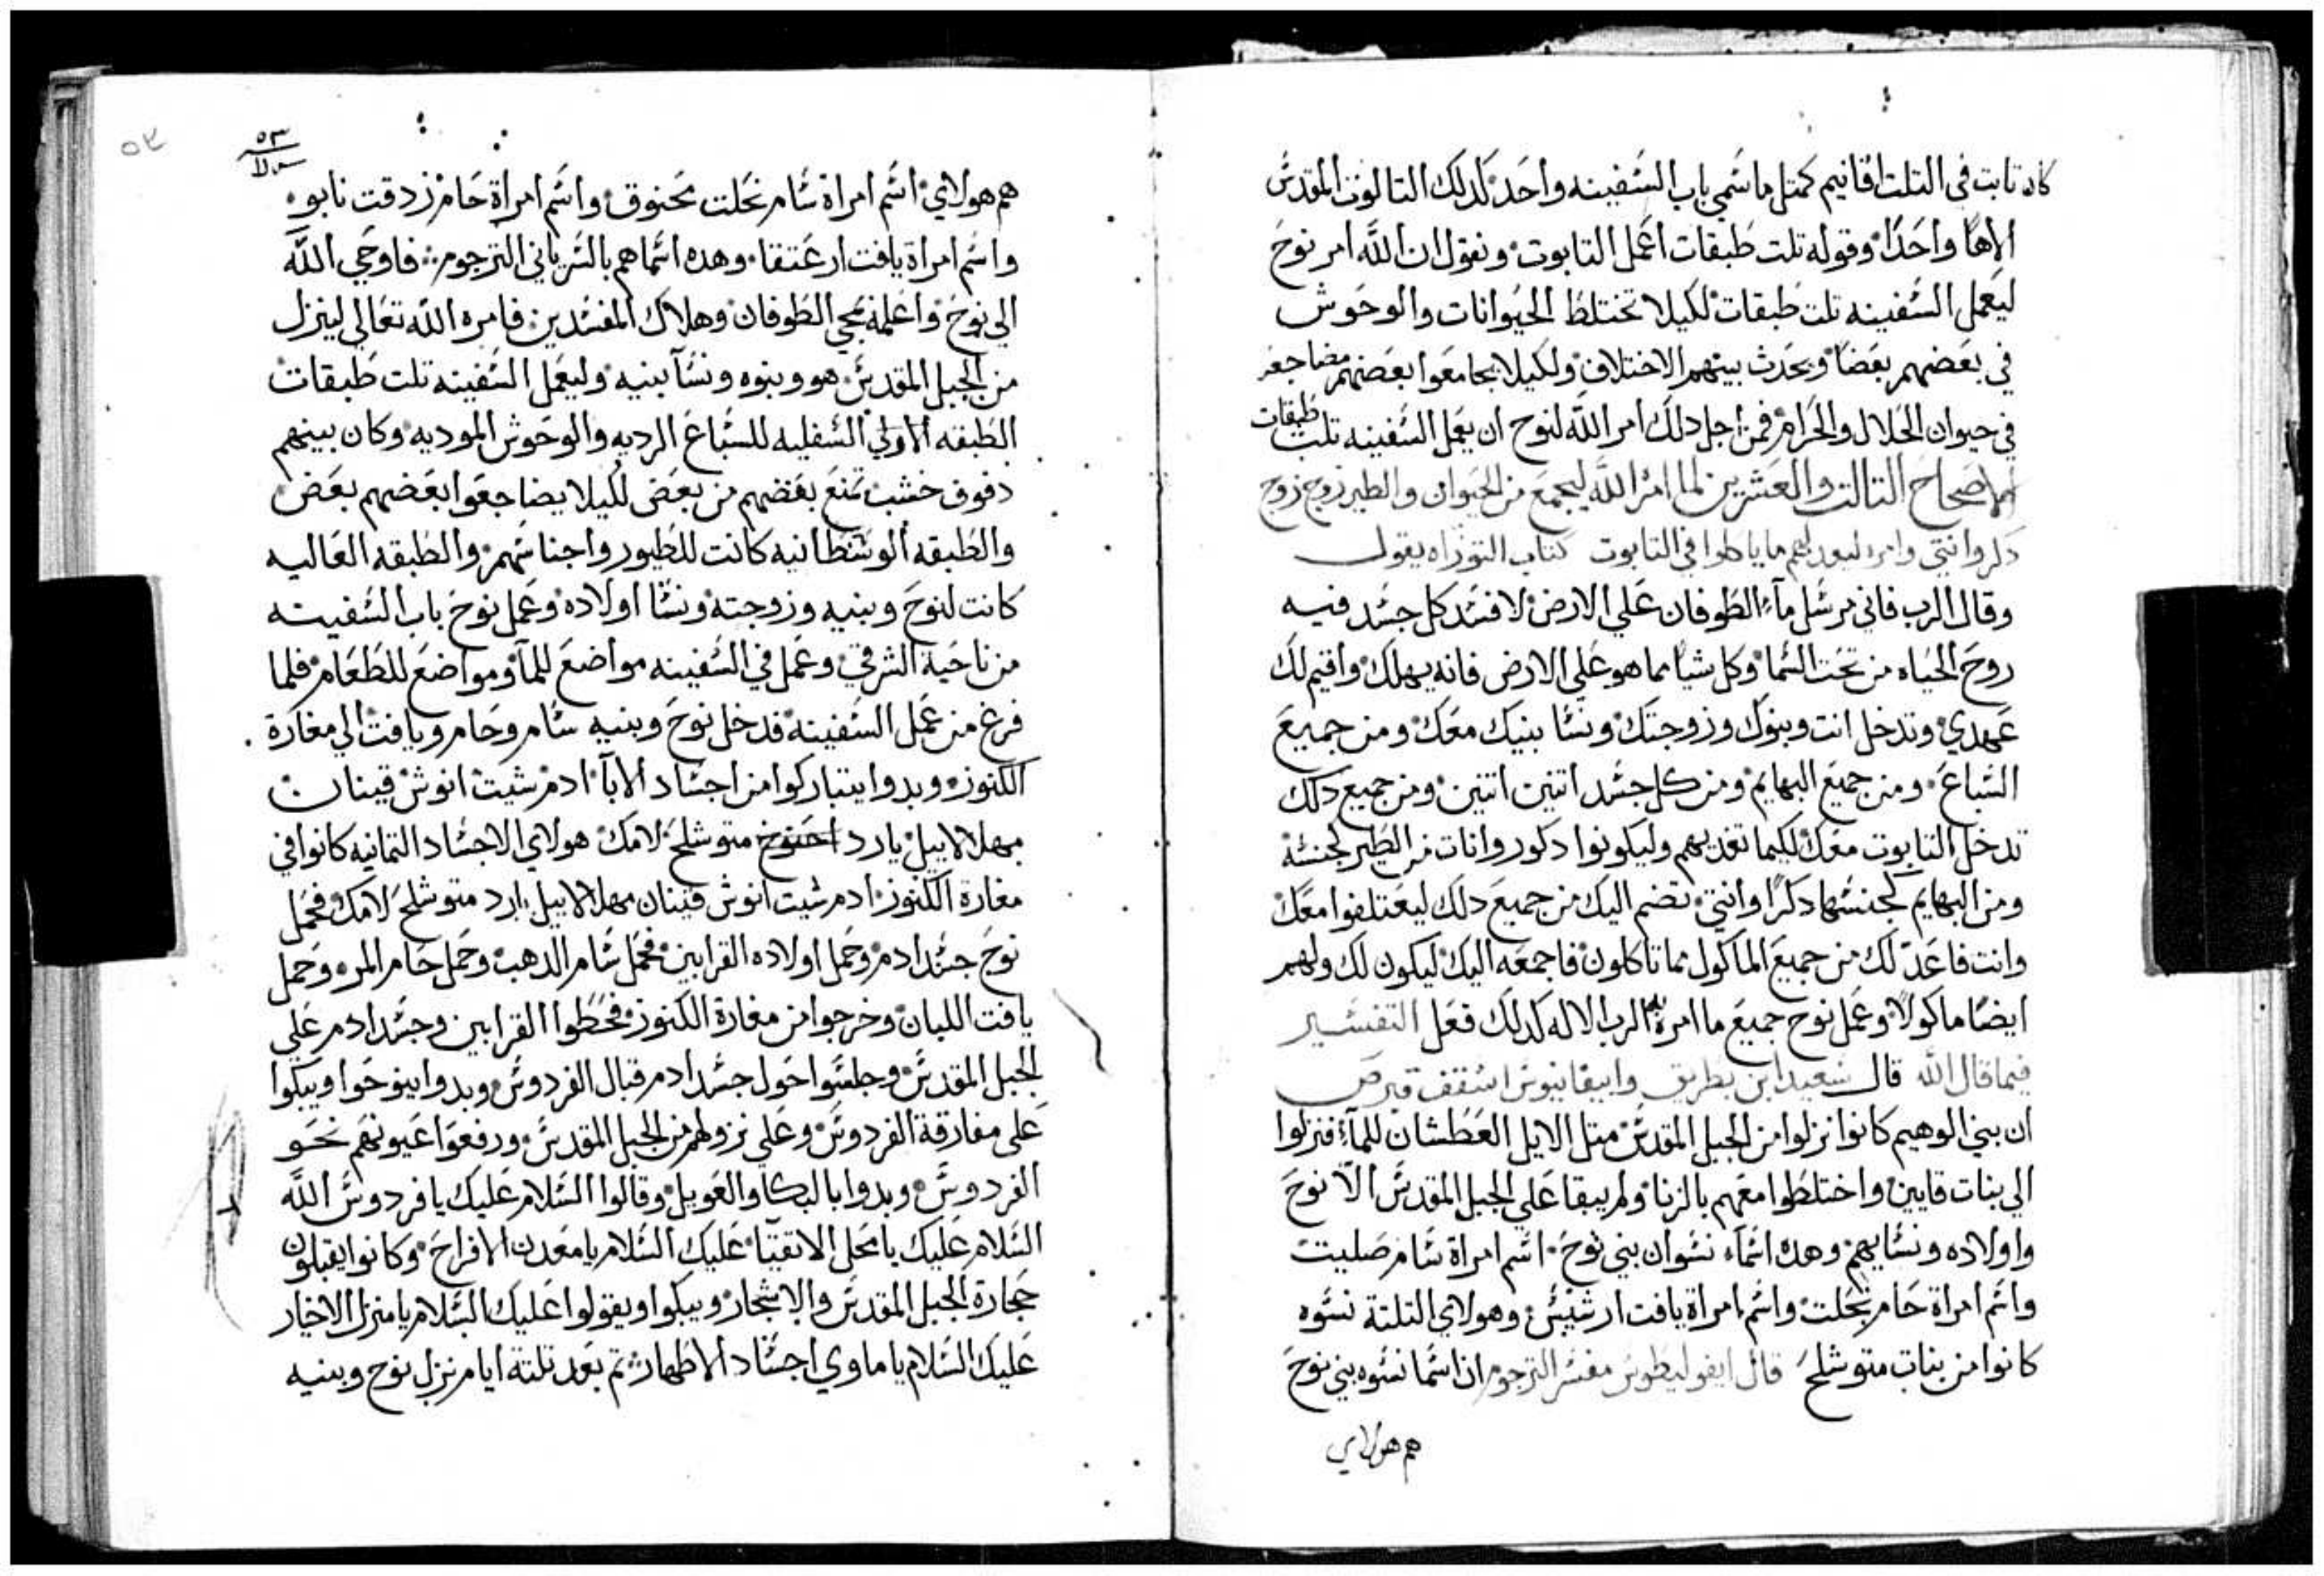 كان تابت في التلت اقانيم كمتل ما سمي باب السفينه واحد كدلك التالوت المقدس
الاها واحدا وقوله تلت طبقات اعمل التابوت ونقول ان الله امر نوح
ليعمل السفينه تلت طبقات لكيلا تختلط الحيوانات والوحوش
في بعضهم بعضا ويحدث بينهم الاختلاف ولكيلا يجامعوا بعضهم مضاجعه
في حيوان الحلال والحرام فمن اجل دلك امر الله لنوح ان يعمل السفينه تلت طبقات
الاصحاح التالت والعشرين لما امر الله ليجمع من الحيوان والطير زوج زوج
دكر وانتي وامره ليعد لهم ما ياكلوا في التابوت كتاب التوراه يقول
وقال الرب فاني مرسل مآء الطوفان علي الارض لافسد كل جسد فيه
روح الحياه من تحت السما وكل شيا مما هو علي الارض فانه يهلك واقيم لك
عهدي وتدخل انت وبنوك وزوجتك ونسا بنيك معك ومن جميع
السباع ومن جميع البهايم ومن كل جسد اتنين اتنين ومن جميع دلك
تدخل التابوت معك لكيما تغديهم وليكونوا دكور وانات من الطير كجنسه
ومن البهايم كجنسها دكرا وانتي تضم اليك من جميع دلك ليعتلفوا معك
وانت فاعد لك من جميع الماكول مما تاكلون فاجمعه اليك ليكون لك ولهم
ايضا ماكولا وعمل نوح جميع ما امره به الرب الاله كدلك فعل التفسير
فيما قال الله قال سعيد ابن بطريق وابيفانيوس اسقف قبرص
ان بني الوهيم كانوا نزلوا من الجبل المقدس متل الايل العطشان للمآء فنزلوا
الي بنات قايين واختلطوا معهم بالزنا ولم يبقا علي الجبل المقدس الا نوح
واولاده ونسايهم وهده اسمآء نسوان بني نوح اسم امراة سام صليت
واسم امراة حام نحلت واسم امراة يافت ارسيس وهولاي التلتة نسوه
كانوا من بنات متوشلح قال ايفوليطوس مفسر الترجوم ان اسما نسوه بني نوح
هم هولاي
٥٣
هم هولاي اسم امراة سام نحلت محنوق واسم امراة حام زدقت نابو
واسم امراة يافت ارعتقا وهده اسماهم بالسرياني الترجوم فاوحي الله
الي نوح واعلمه بمجي الطوفان وهلاك المفسدين فامره الله تعالي لينزل
من الجبل المقدس هو وبنوه ونسآ بنيه وليعمل السفينه تلت طبقات
الطبقه الاولي السفليه للسباع الرديه والوحوش الموديه وكان بينهم
دفوف خشب تمنع بعضهم من بعض لكيلا يضاجعوا بعضهم بعض
والطبقه الوسطانيه كانت للطيور واجناسهم والطبقه العاليه
كانت لنوح وبنيه وزوجته ونسا اولاده وعمل نوح باب السفينه
من ناحية الشرقي وعمل في السفينه مواضع للمآ ومواضع للطعام فلما
فرغ من عمل السفينه فدخل نوح وبنيه سام وحام ويافت الي مغارة
الكنوز وبدوا يتباركوا من اجساد الابآ ادم شيت انوش قينان
مهلالاييل يارد احنوخ متوشلح لامك هولاي الاجساد التمانيه كانوا في
مغارة الكنوز ادم شيت انوش قينان مهلالاييل يارد متوشلح لامك فحمل
نوح جسد ادم وحمل اولاده القرابين فحمل سام الدهب وحمل حام المر وحمل
يافت اللبان وخرجوا من مغارة الكنوز فحطوا القرابين وجسد ادم علي
الجبل المقدس وجلسوا حول جسد ادم قبال الفردوس وبدوا ينوحوا ويبكوا
علي مفارقة الفردوس وعلي نزولهم من الجبل المقدس ورفعوا عيونهم نحو
الفردوس وبدوا بالبكا والعويل وقالوا السلام عليك يا فردوس الله
السلام عليك يا محل الاتقيآ عليك السلام يا معدن الافراح وكانوا يقبلون
حجارة الجبل المقدس والاشجار ويبكوا ويقولوا عليك السلام يا منزل الاخيار
عليك السلام يا ماوي اجساد الاطهار تم بعد تلتة ايام نزل نوح وبنيه